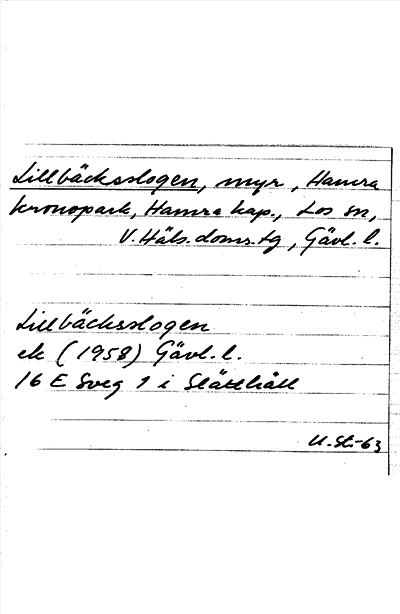 Lillbäcksslogen, myr, Hamra
kronopark, Hamra kap., Los sn,
V. Häls. doms. tg, Gävl. l.
Lillbäcksslogen
ek (1958) Gävl. l.
16 E Sveg 1 i Slätthåll
U. St-63